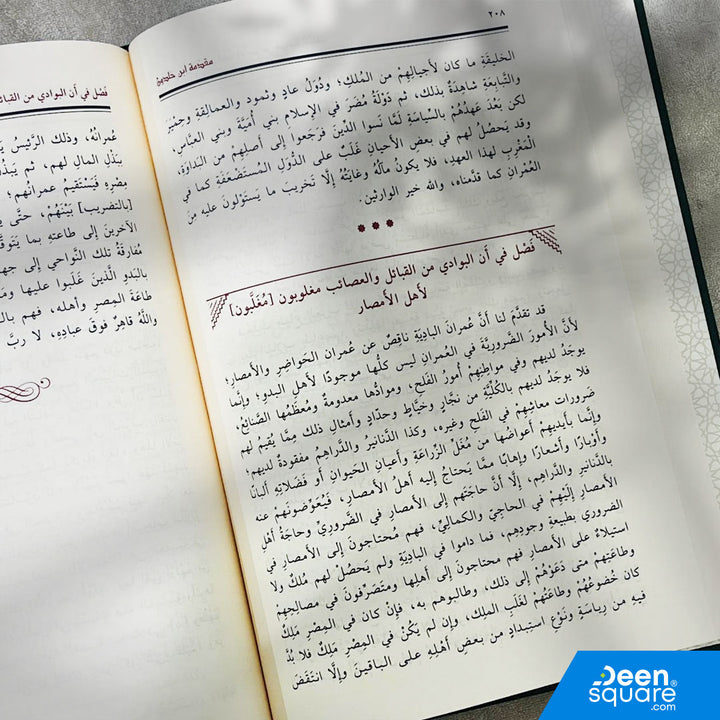 ٢٠٨
مقدمة ابن خلدون
الخليقَةِ ما كان لأجيالِهِمْ من المُلكِ؛ ودُوَلُ عادٍ وثمود والعمالقةِ وحِمْيَرَ
والتَّبابِعَةِ شاهِدَةٌ بذلك، ثم دَوْلَةُ مُضَرَ في الإسلام بني أُمَيَّةَ وبني العبَّاسِ،
لكن بَعُدَ عَهدُهُمْ بالسِّياسَةِ لَمَّا نَسوا الدِّينَ فرَجَعوا إلى أصلِهِمْ من البَداوَةِ،
وقد يَحصُلُ لهم في بعض الأحيانِ غَلَبٌ على الدُّوَلِ المُستَضعَفَةِ كما في
المَغْرِبِ لهذا العهدِ، فلا يكونُ مآلُهُ وغايَتُهُ إلَّا تَخريبَ ما يَستَوْلونَ عليه من
العُمْرانِ كما قدَّمناه، والله خير الوارثين.
فَصْل في أن البوادي من القبائل والعصائب مغلوبون [مُغَلَّبون]
لأهل الأمصار
قد تقدَّمَ لنا أنَّ عُمرانَ البادِيَةِ ناقِصٌ عن عُمران الحَواضِرِ والأمصارِ؛
لأنَّ الأُمورَ الضَّروريَّةَ في العُمرانِ ليس كلُّها موجودًا لأهلِ البدوِ؛ وإنَّما
يوجَدُ لديهم وفي مواطِنِهِمْ أُمورُ الفَلحِ، وموادُّها معدومةٌ ومُعظَمُها الصَّنائِعُ،
فلا يوجَدُ لديهم بالكُلِّيَّةِ من نجَّارٍ وخيَّاطٍ وحدَّادٍ وأمثالِ ذلك مِمَّا يُقيمُ لهم
ضَرورات معاشِهِمْ في الفلحِ وغيرِه، وكذا الدَّنانيرُ والدَّراهِمُ مفقودةٌ لديهم؛
وإنَّما بأيديهمْ أعواضُها من مُغَلِّ الزِّراعَةِ وأعيانِ الحَيوانِ أو فَضَلاتِهِ ألبانًا
وأوْبارًا وأشعارًا وإهابًا مِمَّا يَحتاجُ إليه أهلُ الأمصارِ، فيُعَوِّضونهمْ عنه
بالدَّنانيرِ والدَّراهِمِ، إلَّا أنَّ حاجَتَهُم إلى الأمصارِ في الضَّروريِّ وحاجَةُ أهْلِ
الأمصارِ إلَيْهِمْ في الحاجِيِّ والكماليِّ، فهم مُحتاجون إلى الأمصارِ في
الضروري بطَبيعةِ وجودِهم، فما داموا في البادِيَةِ ولم يَحصُلْ لهم مُلكٌ ولا
استيلاءٌ على الأمصارِ فهم محتاجون إلى أهلِها ومتَصرِّفونَ في مصالِحِهِمْ
وطاعَتِهِمْ متى دَعَوْهُمْ إلى ذلك، وطالبوهم به، فإنْ كان في المِصْرِ مَلِكٌ
كان خُضوعُهُمْ وطاعَتُهُمْ لغَلَبِ المَلِكِ، وإن لم يَكُنْ في المِصْرِ مَلِكٌ فلا بُدَّ
فيه من رِياسَةٍ ونَوْعِ استِبدادٍ من بعضِ أهْلِهِ على الباقينَ وإلَّا انتَقَضَ
فَصْل في أن البوادي من القبا
عمرانُهُ، وذلك الرَّئيسُ
ببَذْلِ المالِ لهم، ثم
مِصْرِهِ فيَسْتَقيمُ عمرانُهُم؛
[بالتضريب] بَيْنَهُمْ، حتَّى
الآخَرينَ إلى طاعَتِهِ بما
مُفارقَةُ تلك النَّواحي إلى
بالبَدوِ الَّذينَ غَلَبوا عليها
طاعَةُ المِصرِ وأهلِهِ، فهم
واللهُ قاهِرٌ فوقَ عِبادِهِ، لا ربَّ
Deen
square®
.com